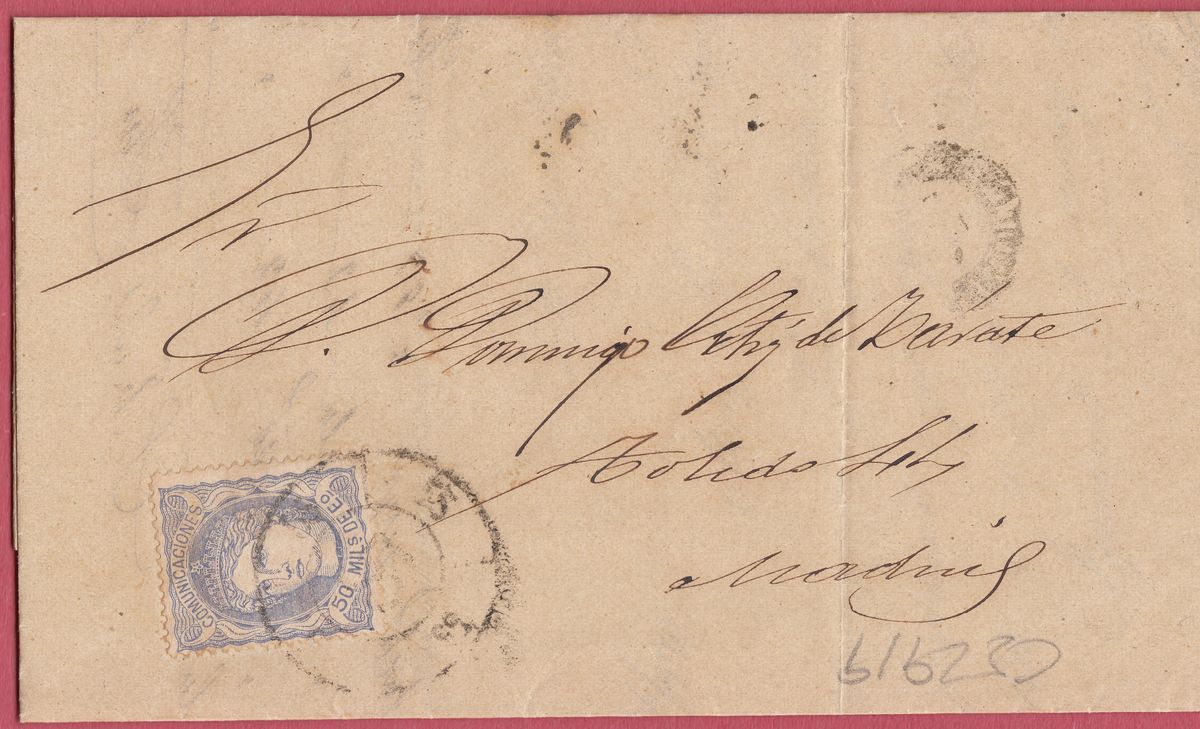 Sr
D. Domingo de Zarate
Toledo
Madrid
COMUNICACIONES
50 MILS DE Eº